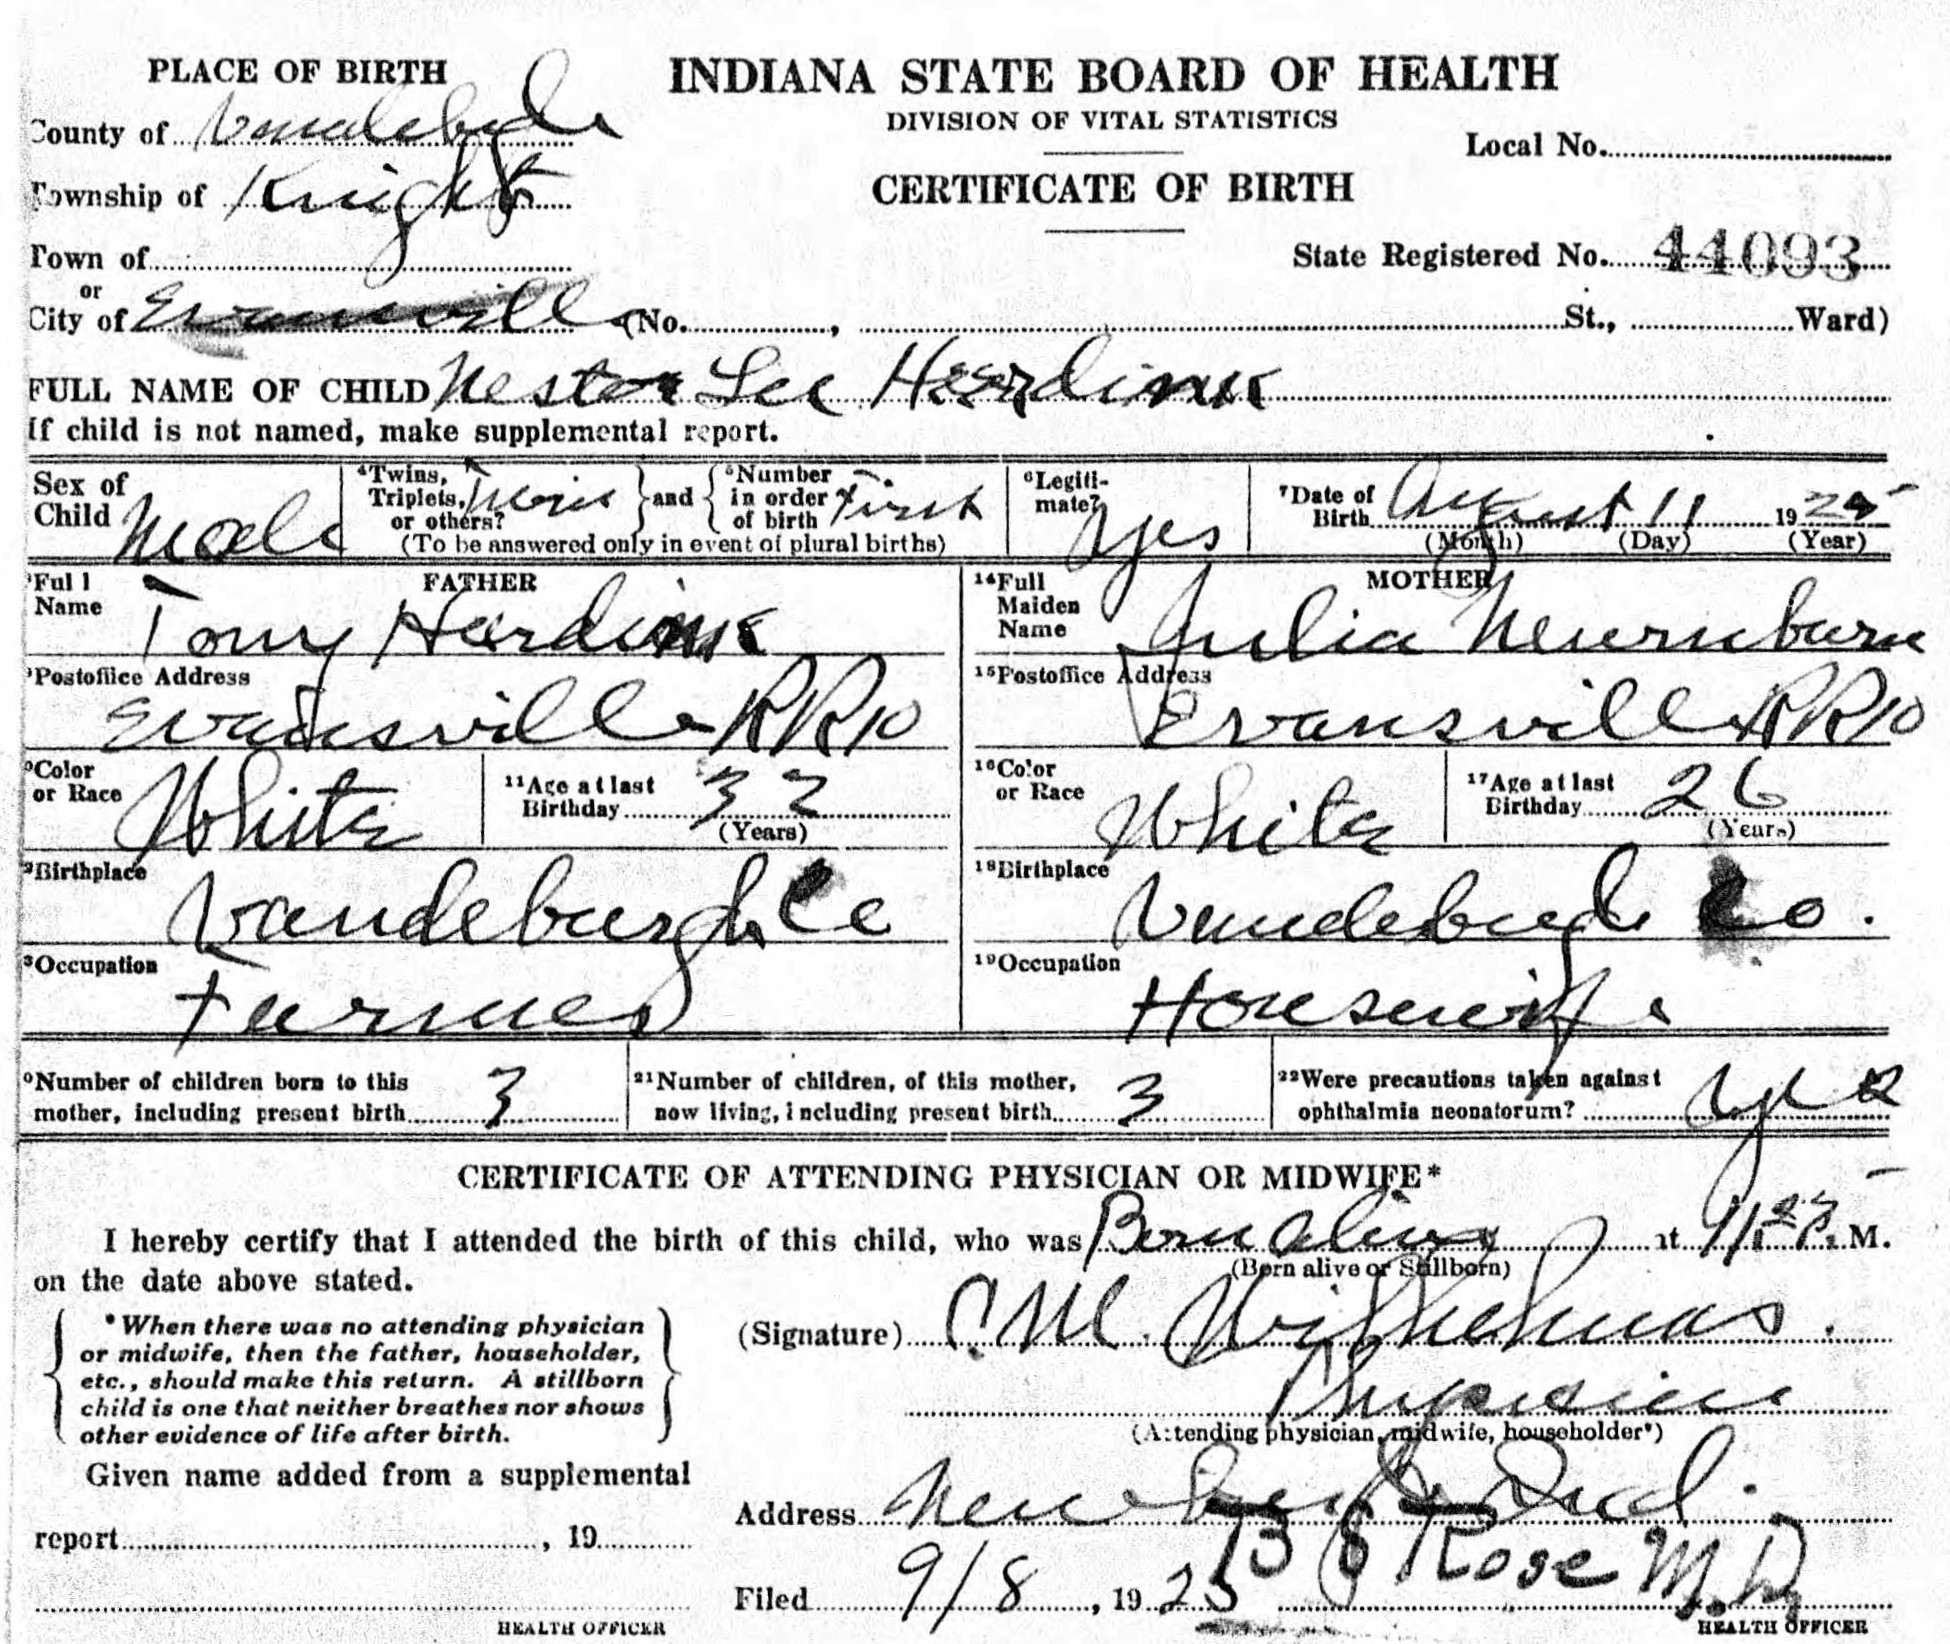 PLACE OF BIRTH
INDIANA STATE BOARD OF HEALTH
DIVISION OF VITAL STATISTICS
County of
Local No.
CERTIFICATE OF BIRTH
Township of Knight
State Registered No. 44093
Town of
or
City of Evansville (No. , St., Ward)
FULL NAME OF CHILD Nestor Lee Heerdink
If child is not named, make supplemental report.
Sex of Child Male
4 Twins, Triplets, or others? Twins and 5 Number in order of birth First
(To be answered only in event of plural births)
6 Legitimate? Yes
7 Date of Birth August 11 1925
(Month) (Day) (Year)
FATHER
Full Name Tony Herdink
Postoffice Address
Evansville RR10
Color or Race White
11 Age at last Birthday 32
(Years)
Birthplace
Vandeburgh Co
Occupation
Farmer
MOTHER
14 Full Maiden Name Julia
15 Postoffice Address
Evansville RR10
16 Color or Race White
17 Age at last Birthday 26
(Years)
18 Birthplace
Vandeburgh Co.
19 Occupation
Housewife
Number of children born to this mother, including present birth 3
21 Number of children, of this mother, now living, including present birth 3
22 Were precautions taken against ophthalmia neonatorum? yes
CERTIFICATE OF ATTENDING PHYSICIAN OR MIDWIFE*
I hereby certify that I attended the birth of this child, who was Born alive at M.
(Born alive or Stillborn)
on the date above stated.
*When there was no attending physician
or midwife, then the father, householder,
etc., should make this return. A stillborn
child is one that neither breathes nor shows
other evidence of life after birth.
(Signature) Wilhelmus.
Physician
(Attending physician, midwife, householder*)
Given name added from a supplemental
report , 19
HEALTH OFFICER
Address Newburgh Ind.
Filed 9/8, 1925 Rose M.D.
HEALTH OFFICER